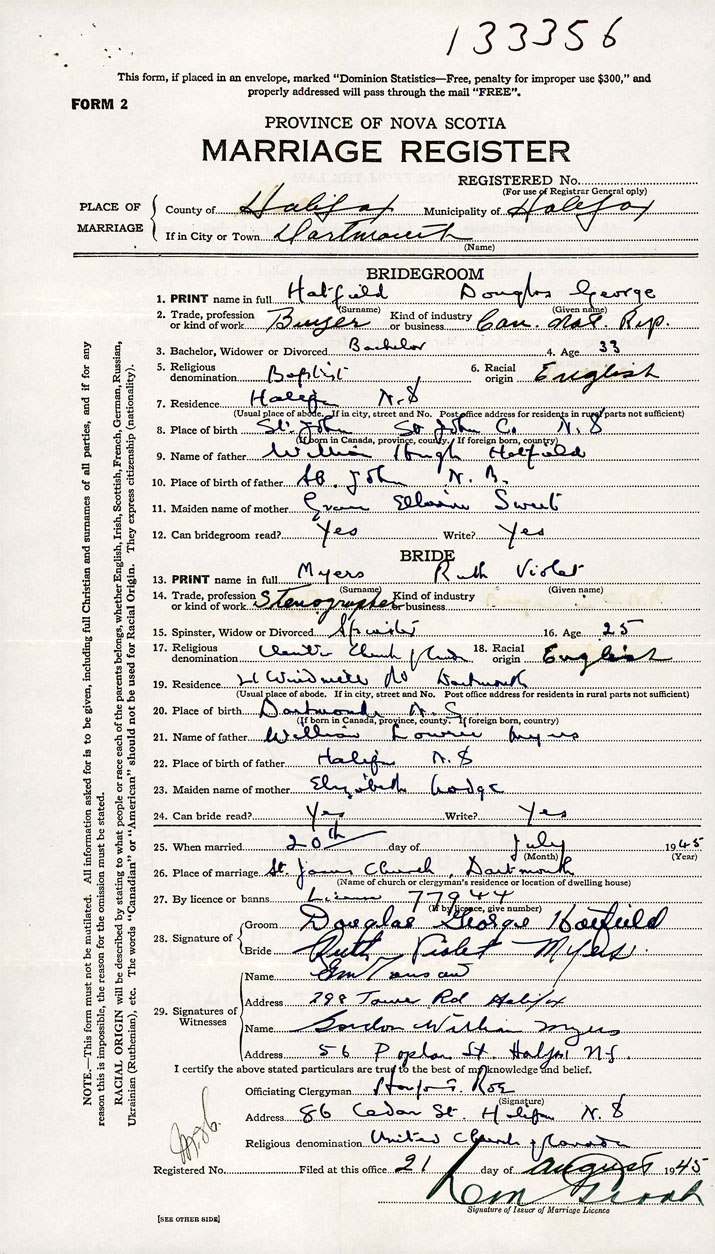 133356
This form, if placed in an envelope, marked "Dominion Statistics—Free, penalty for improper use $300," and
properly addressed will pass through the mail "FREE".
FORM 2
PROVINCE OF NOVA SCOTIA
MARRIAGE REGISTER
REGISTERED No.
(For use of Registrar General only)
PLACE OF MARRIAGE
County of Halifax Municipality of Halifax
If in City or Town Dartmouth
(Name)
BRIDEGROOM
1. PRINT name in full Hatfield Douglas George
(Surname) (Given name)
2. Trade, profession or kind of work Kind of industry or business Can. Nat.
3. Bachelor, Widower or Divorced Bachelor 4. Age 33
5. Religious denomination Baptist 6. Racial origin English
7. Residence Halifax N.S
(Usual place of abode. If in city, street and No. Post office address for residents in rural parts not sufficient)
8. Place of birth St. John St John Co. N.S
(If born in Canada, province, county. If foreign born, country)
9. Name of father William Hugh Hatfield
10. Place of birth of father St. John N.B.
11. Maiden name of mother Sweet
12. Can bridegroom read? Yes Write? Yes
BRIDE
13. PRINT name in full Myers Ruth Violet
(Surname) (Given name)
14. Trade, profession or kind of work Stenographer Kind of industry or business
15. Spinster, Widow or Divorced Spinster 16. Age 25
17. Religious denomination United Church of Canada 18. Racial origin English
19. Residence Windmill Rd Dartmouth
(Usual place of abode. If in city, street and No. Post office address for residents in rural parts not sufficient)
20. Place of birth Dartmouth N.S.
(If born in Canada, province, county. If foreign born, country)
21. Name of father William Myers
22. Place of birth of father Halifax N.S
23. Maiden name of mother Elizabeth
24. Can bride read? Yes Write? Yes
25. When married 20th day of July 1945
(Month) (Year)
26. Place of marriage St. James Church, Dartmouth
(Name of church or clergyman's residence or location of dwelling house)
27. By licence or banns License 77944
(If by licence, give number)
28. Signature of
Groom Douglas George Hatfield
Bride Ruth Violet Myers.
29. Signatures of Witnesses
Name
Address 298 Tower Rd Halifax
Name Gordon William Myers
Address 56 Poplar St. Halifax N.S.
I certify the above stated particulars are true to the best of my knowledge and belief.
Officiating Clergyman
(Signature)
Address 86 Cedar St. Halifax N.S
Religious denomination United Church of Canada
Registered No. Filed at this office 21 day of August 1945
Signature of Issuer of Marriage Licence
[SEE OTHER SIDE]
NOTE.—This form must not be mutilated. All information asked for is to be given, including full Christian and surnames of all parties, and if for any
reason this is impossible, the reason for the omission must be stated.
RACIAL ORIGIN will be described by stating to what people or race each of the parents belongs, whether English, Irish, Scottish, French, German, Russian,
Ukrainian (Ruthenian), etc. The words "Canadian" or "American" should not be used for Racial Origin. They express citizenship (nationality).